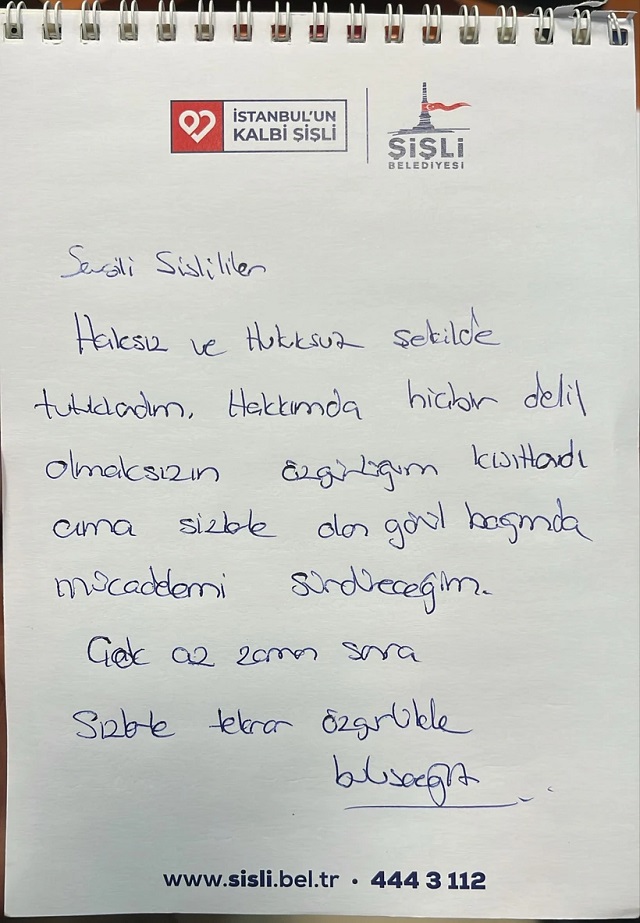 İSTANBUL'UN
KALBİ ŞİŞLİ
ŞİŞLİ
BELEDİYESİ
Sevgili Şişlililer
Haksız ve Hukuksuz şekilde
tutuklandım. Hakkımda hiçbir delil
olmaksızın özgürlüğüm kısıtlandı
ama sizlerle olan gönül bağımda
mücadelemi sürdüreceğim.
Çok az zaman sonra
Sizlerle tekrar özgürlükle
buluşacağız
www.sisli.bel.tr • 444 3 112